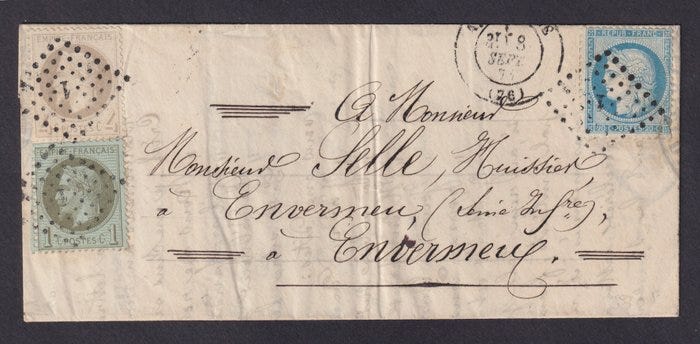 EMPIRE FRANÇAIS
4
EMPIRE FRANÇAIS
1 POSTES 1
8
SEPT
(76)
REPUB. FRANC.
20 POSTES 20
A Monsieur
Monsieur Selle, Huissier,
à Envermeu, (Seine Infre),
à Envermeu.